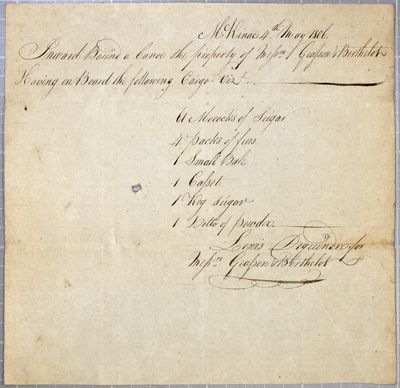 McKinac 4th May 1806.
Inward Bound a Canoe the property of Messrs Giasson & Berthelot
Having on Board the following Cargo Vizt.
61 Mococks of Sugar
4 packs of furs
1 Small Bale
1 Casset
1 Keg sugar
1 Ditto of powder
Lewis for
Messrs Giasson & Berthelot